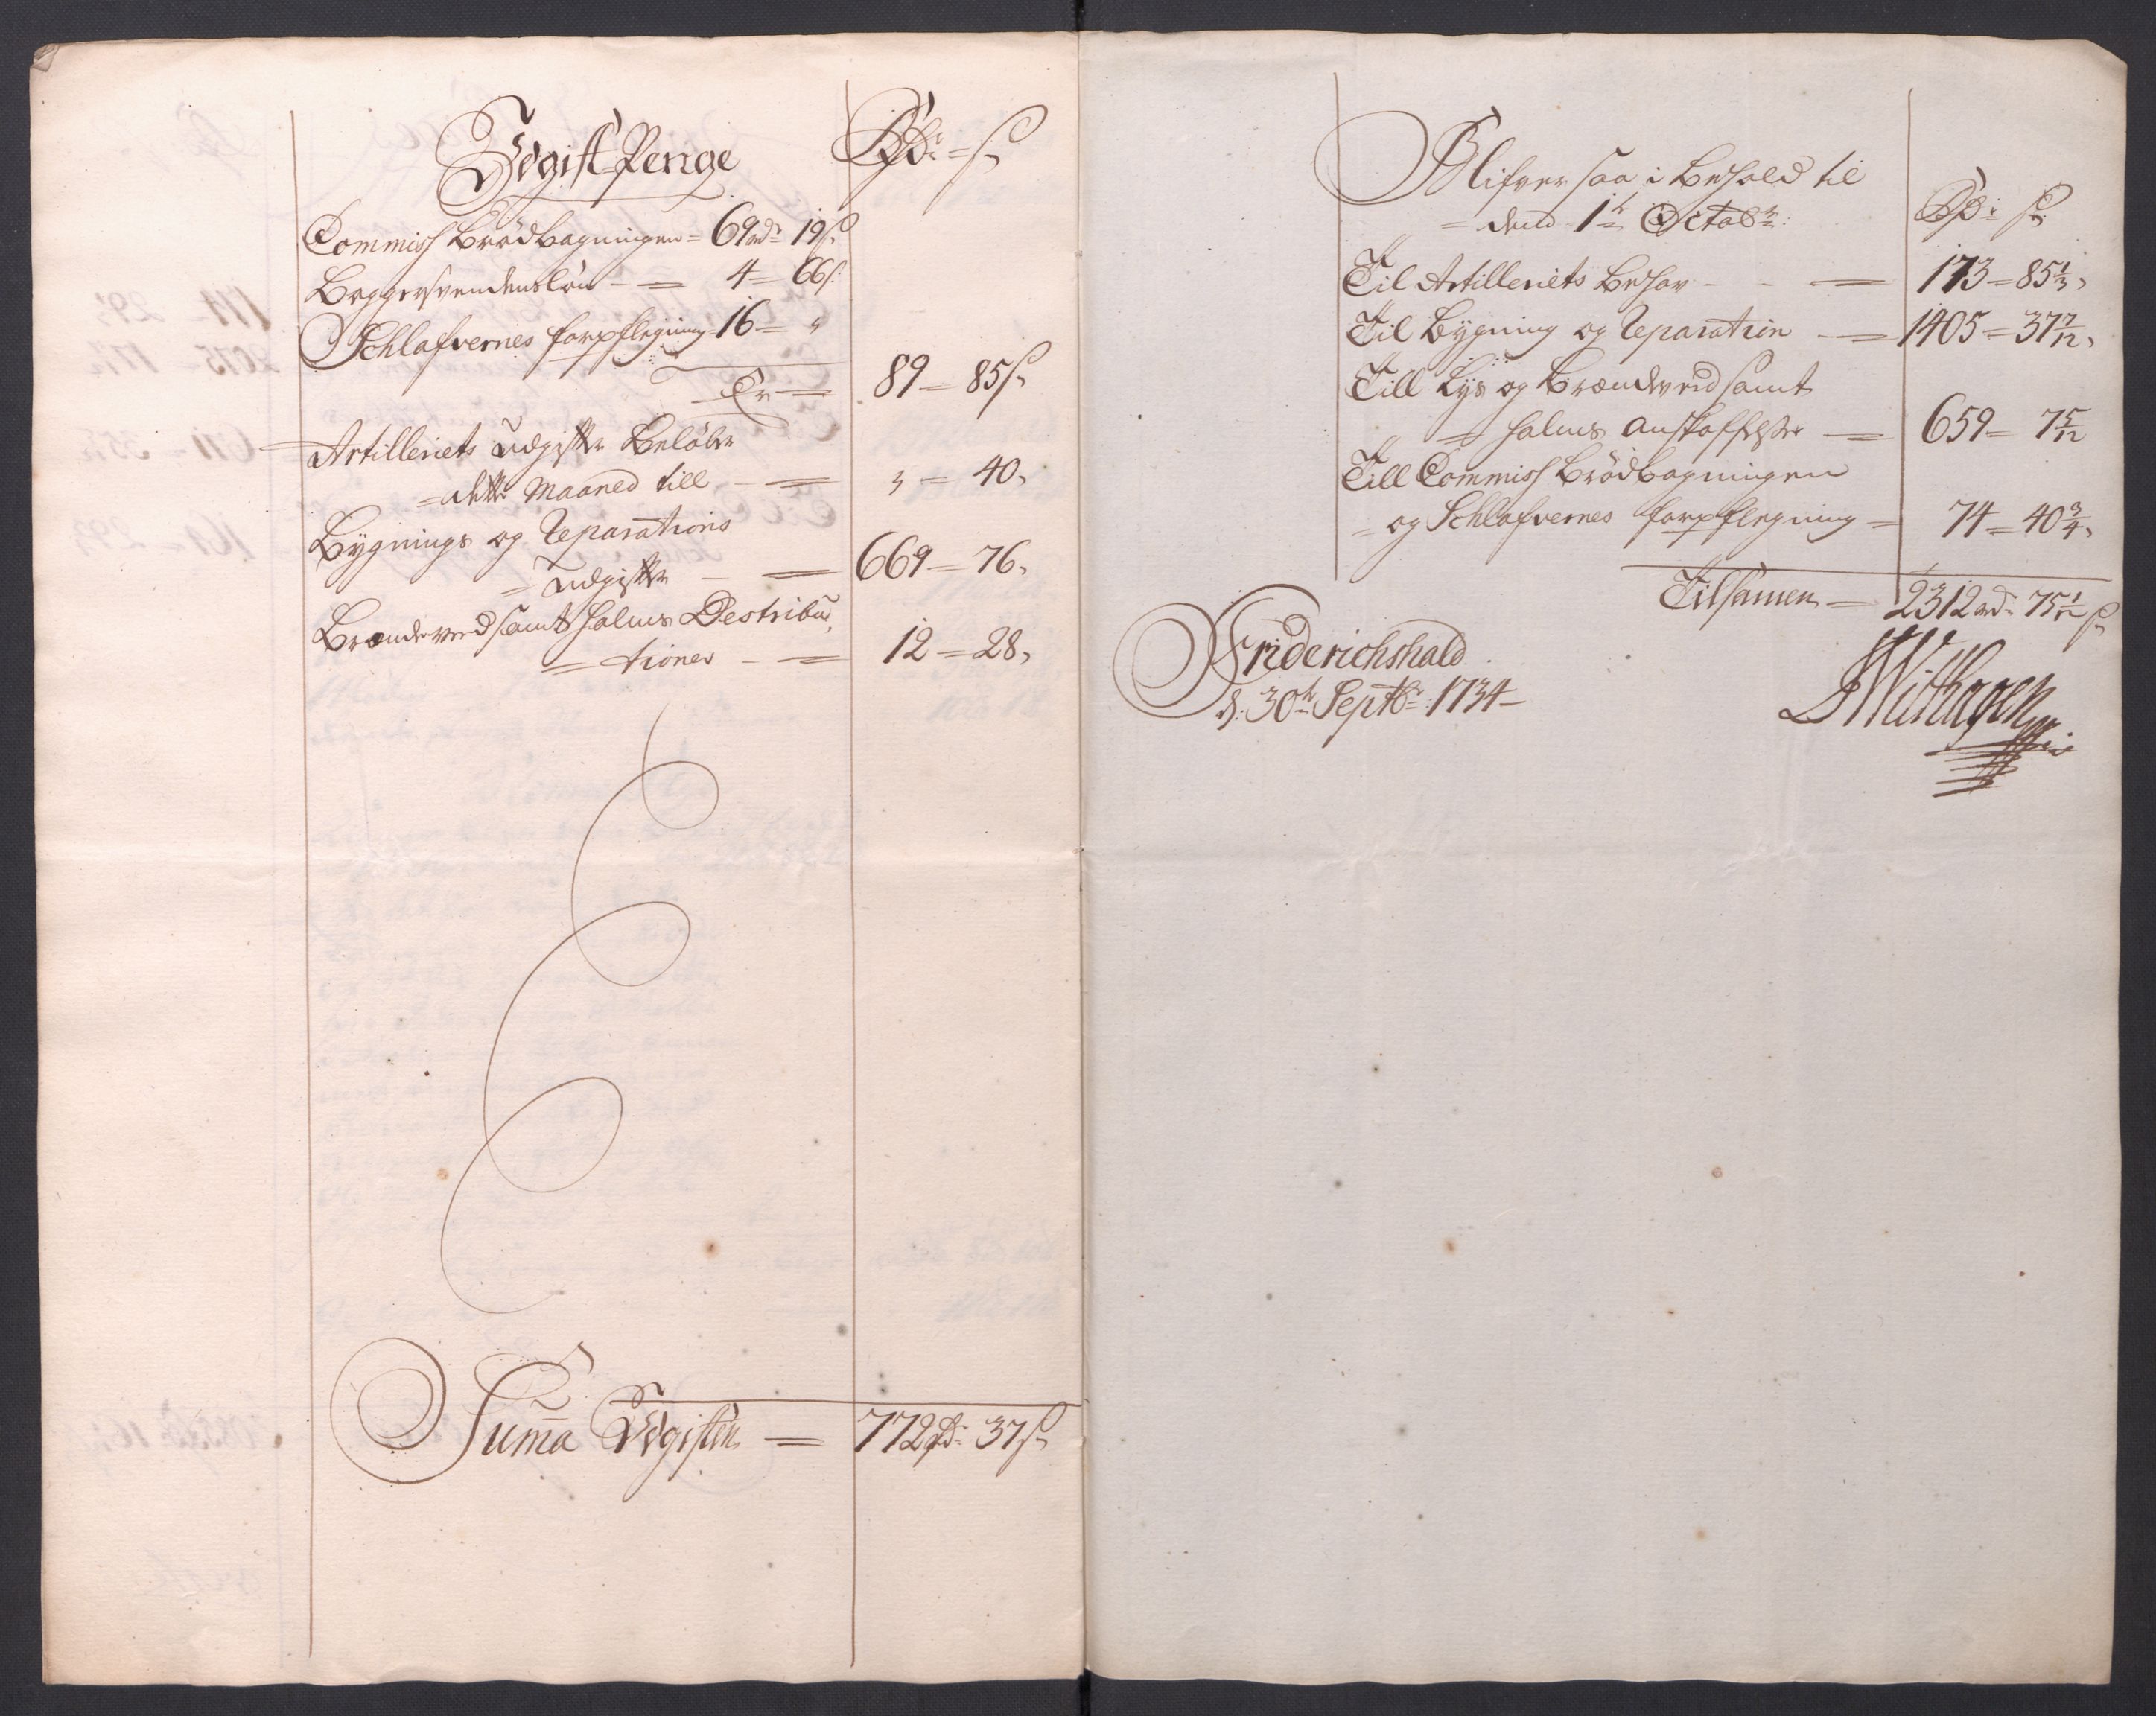 Udgift Penge Rd: = s
Commiss Brödbagningen = 69 rd: 19 s
Baggersvendens lön — = 4 = 66 s
Schlafvernes forpflegning = 16 = "
Er — = 89 = 85 s
Artilleriets udgifter Belöber
= dette Maaned till — = " = 40,
Bygnings og Reparations
= udgifter — = 669 = 76,
Brændeved samt halms Destribu,
= tioner — = 12 = 28,
Suma Udgiften = 772 Rd: 37 s
Blifver saa i Behold til
= dend 1te Octobr: Rd: s
Til Artilleriets Behov — — = 173 = 85 1/3,
Til Bygning og Reparation — = 1405 = 37 7/12,
Till Lys og Brændeved samt
= halms anskaffelse — = 659 = 7 5/12
Till Commiss Brödbagningen
= og Schlafvernes forpflegning = 74 = 40 3/4,
Tilsamen = 2312 rd: 75 1/12 s
Friderichshald
d: 30te Septbr: 1734